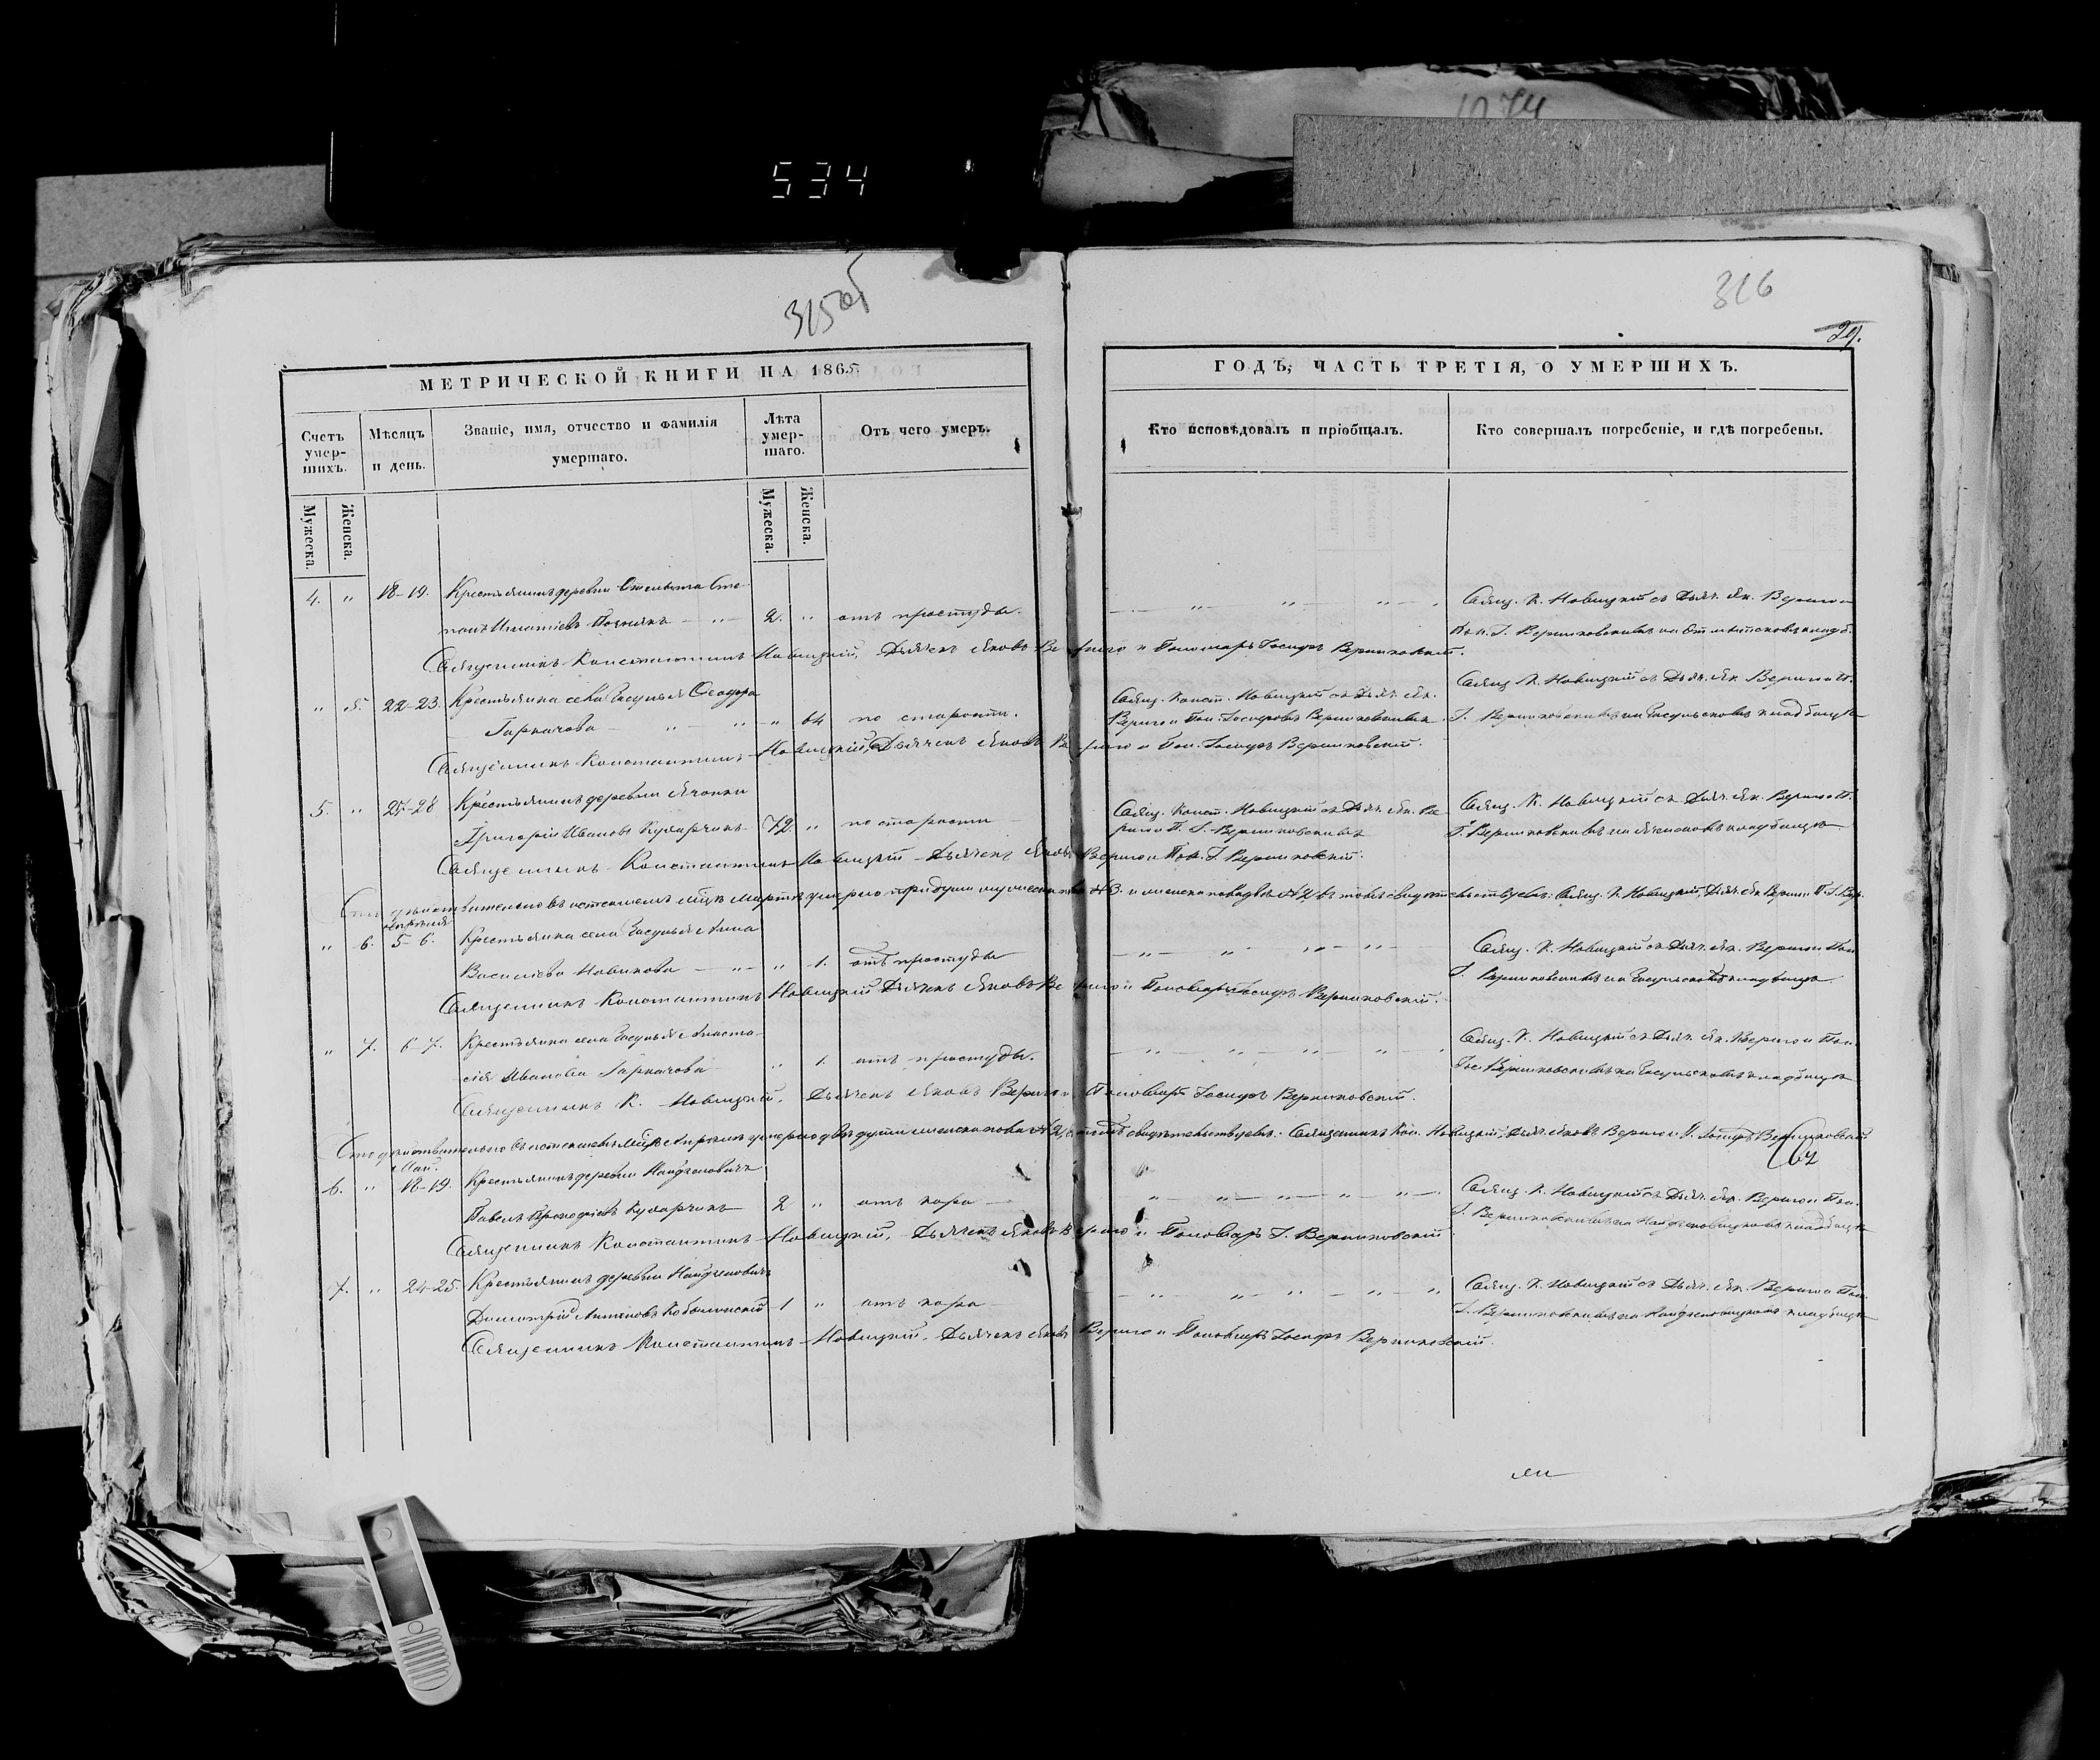 1074
534
315об
316
29.
МЕТРИЧЕСКОЙ КНИГИ НА 1865
ГОДЪ, ЧАСТЬ ТРЕТІЯ, О УМЕРШИХЪ.
Счетъ умер-шихъ.
Мѣсяцъ и день.
Званіе, имя, отчество и фамилія умершаго.
Лѣта умер-шаго.
Отъ чего умеръ.
Кто исповѣдовалъ и пріобщалъ.
Кто совершалъ погребеніе, и гдѣ погребены.
Мужеска.
Женска.
Мужеска.
Женска.
4. " 18-19. Крестьянинъ деревни Сте-
2. " отъ простуды.
Свящ. К. Новицкій съ Дьяч. Як. Вериго и
Пон. І. Вершковскимъ на кладб.
Священникъ Константинъ Новицкій, Дьячекъ Яковъ Вериго и Пономарь Іосифъ Вершковскій.
" 5. 22-23. Крестьянка села Ѳеодора
Горначова " 64 по старости.
Свящ. Конст. Новицкій съ Дьяч. Як.
Вериго и Пон. Іосифомъ Вершковскимъ
Свящ. К. Новицкій съ Дьяч. Як. Вериго и П.
І. Вершковскимъ на кладбищѣ
Священникъ Константинъ Новицкій, Дьячекъ Яковъ Вериго и Пон. Іосифъ Вершковскій.
5. " 25-28 Крестьянинъ деревни Ячонки
Григорій Ивановъ Кухарчикъ 72. " по старости
Свящ. Конст. Новицкій съ Дьяч. Як. Ве-
риго и П. І. Вершковскимъ
Свящ. К. Новицкій съ Дьяч. Як. Вериго и П.
І. Вершковскимъ на кладбищѣ
Священникъ Константинъ Новицкій Дьячекъ Яковъ Вериго и Пон. І. Вершковскій.
Что дѣйствительно въ истекшемъ М-цѣ Мартѣ умерло три души мужеска пола № 3. и женска пола двѣ № 2, въ томъ свидѣтельствуемъ: Свящ. К. Новицкій, Дьяч. Як Вериго и П. І. Вер.
Апрѣля
" 6. 5-6. Крестьянка села Анна
Василіева Новикова " 1. отъ простуды
Свящ. К. Новицкій съ Дьяч. Як. Вериго и Пон
І. Вершковскимъ на кладбищѣ
Священникъ Константинъ Новицкій Дьячекъ Яковъ Вериго и Пономарь Іосифъ Вершковскій.
" 7. 6-7. Крестьянка села Анаста-
сія Иванова Горначова " 1. отъ простуды.
Свящ. К. Новицкій съ Дьяч. Як. Вериго и Пон.
Іос. Вершковскимъ на кладбищѣ
Священникъ К. Новицкій, Дьячекъ Яковъ Вериго и Пономарь Іосифъ Вершковскій.
Что дѣйствительно въ истекшемъ М-цѣ Апрѣлѣ умерло двѣ души женска пола № 2, въ томъ свидѣтельствуемъ: Священникъ Кон. Новицкій, Дьяч. Яковъ Вериго и П. Іосифъ Вершковскій
Май.
6. " 18-19. Крестьянинъ деревни
Павелъ Прокофіевъ Кухарчикъ 2 " отъ кора
Свящ. К. Новицкій съ Дьяч. Як. Вериго и Пон.
І. Вершковскимъ на кладбищѣ
Священникъ Константинъ Новицкій, Дьячекъ Яковъ Вериго и Пономарь І. Вершковскій
7. " 24-25. Крестьянинъ деревни
Димитрій Антоновъ Кобылинскій 1 " отъ кора
Свящ. К. Новицкій съ Дьяч. Як. Вериго и Пон.
І. Вершковскимъ на кладбищѣ
Священникъ Константинъ Новицкій, Дьячекъ Яковъ Вериго и Пономарь Іосифъ Вершковскій.